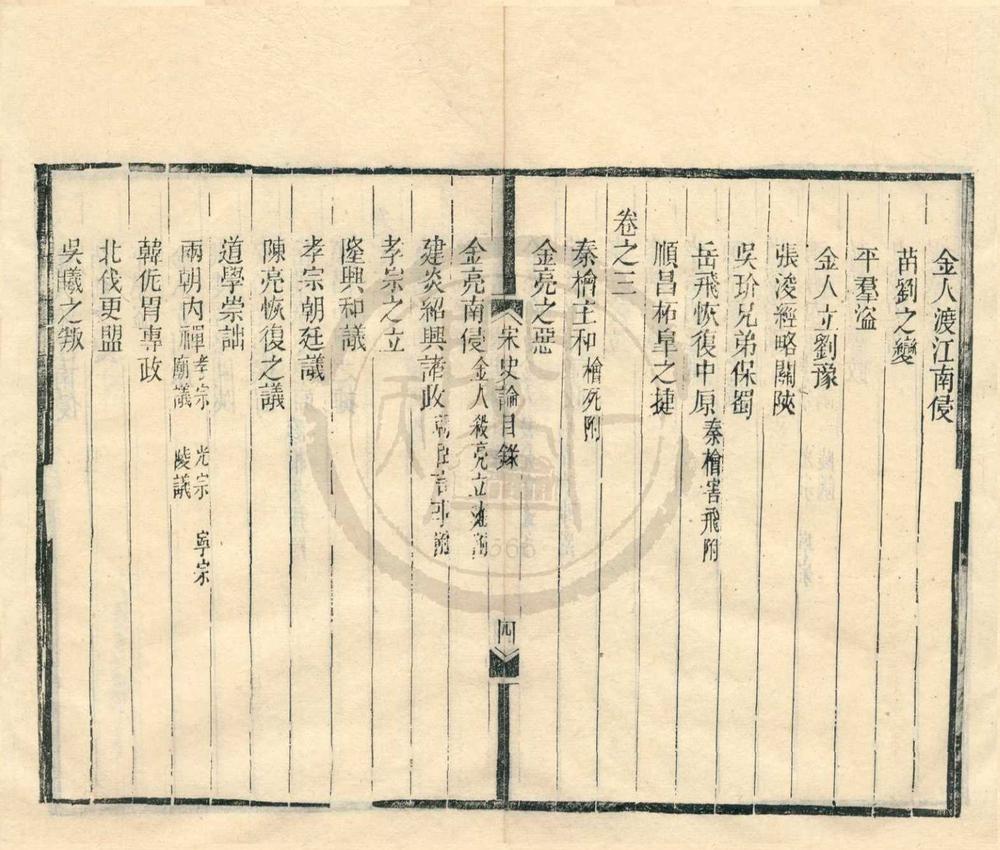 金人渡江南侵
苗劉之變
平羣盜
金人立劉豫
張浚經略關陝
吳玠兄弟保蜀
岳飛恢復中原 秦檜害飛附
順昌柘皐之捷
卷之三
秦檜主和 檜死附
金亮之惡
宋史論目錄
四
金亮南侵 金人殺亮立雍附
建炎紹興諸政 附
孝宗之立
隆興和議
孝宗朝廷議
陳亮恢復之議
道學崇詘
兩朝內禪 孝宗 光宗 寧宗
廟議 陵議
韓侂冑專政
北伐更盟
吳曦之叛